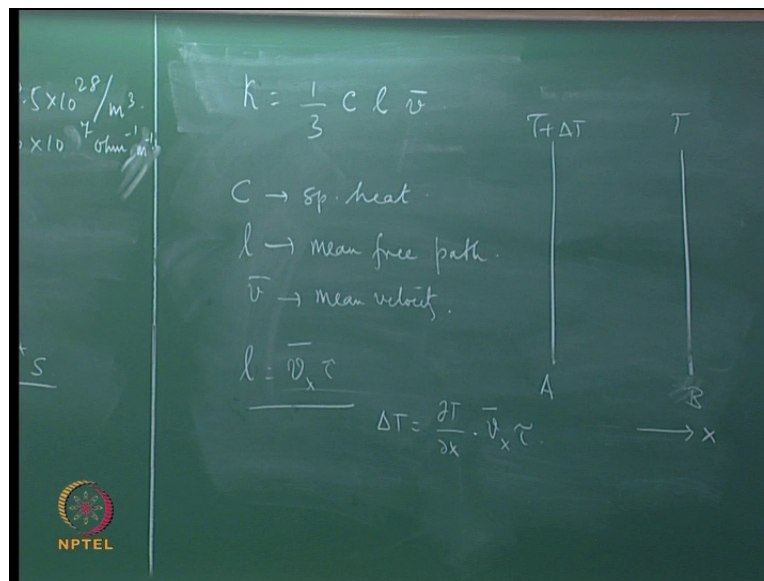 .5×10²⁸/m³.
×10⁷ ohm⁻¹ m⁻¹
s.
K = 1/3 C l v̄
C → sp. heat.
l → mean free path.
v̄ → mean velocity.
l = v̄ₓ τ
ΔT = ∂T/∂x · v̄ₓ τ.
T+ΔT T
A B
→ x
NPTEL